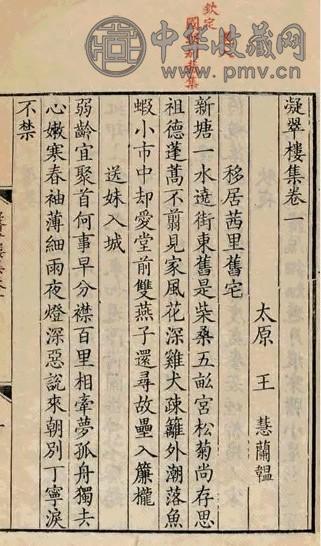 凝翠樓集卷一
太原 王 慧蘭韞
移居茜里舊宅
新塘一水遶街東舊是柴桑五畝宮松菊尚存思
祖德蓬蒿不翦見家風花深雞犬疎籬外潮落魚
蝦小市中却愛堂前雙燕子還尋故壘入簾櫳
送妹入城
弱齡宜聚首何事早分襟百里相牽夢孤舟獨去
心嫩寒春袖薄細雨夜燈深惡說來朝別丁寧淚
不禁
欽定
中华收藏网
www.pmv.cn